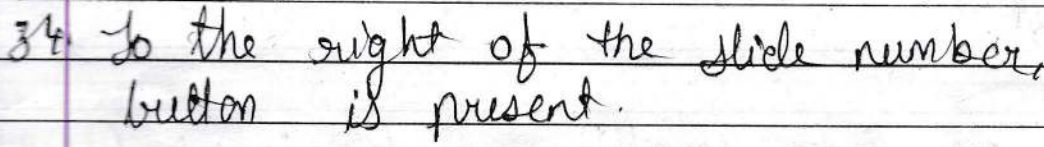 34. To the right of the slide number,
button is present.